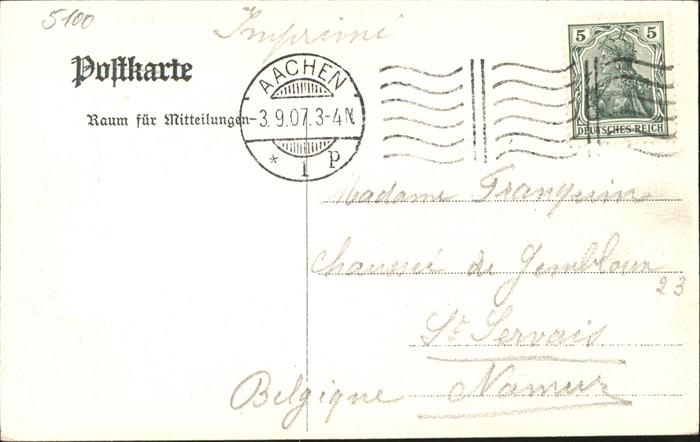 5100
Imprimé
Postkarte
Raum für Mitteilungen
AACHEN
-3.9.07.3-4N
* 1 P
5 5
DEUTSCHES REICH
Madame Franquin
Chaussée de Gembloux
23
St Servais
Namur
Belgique